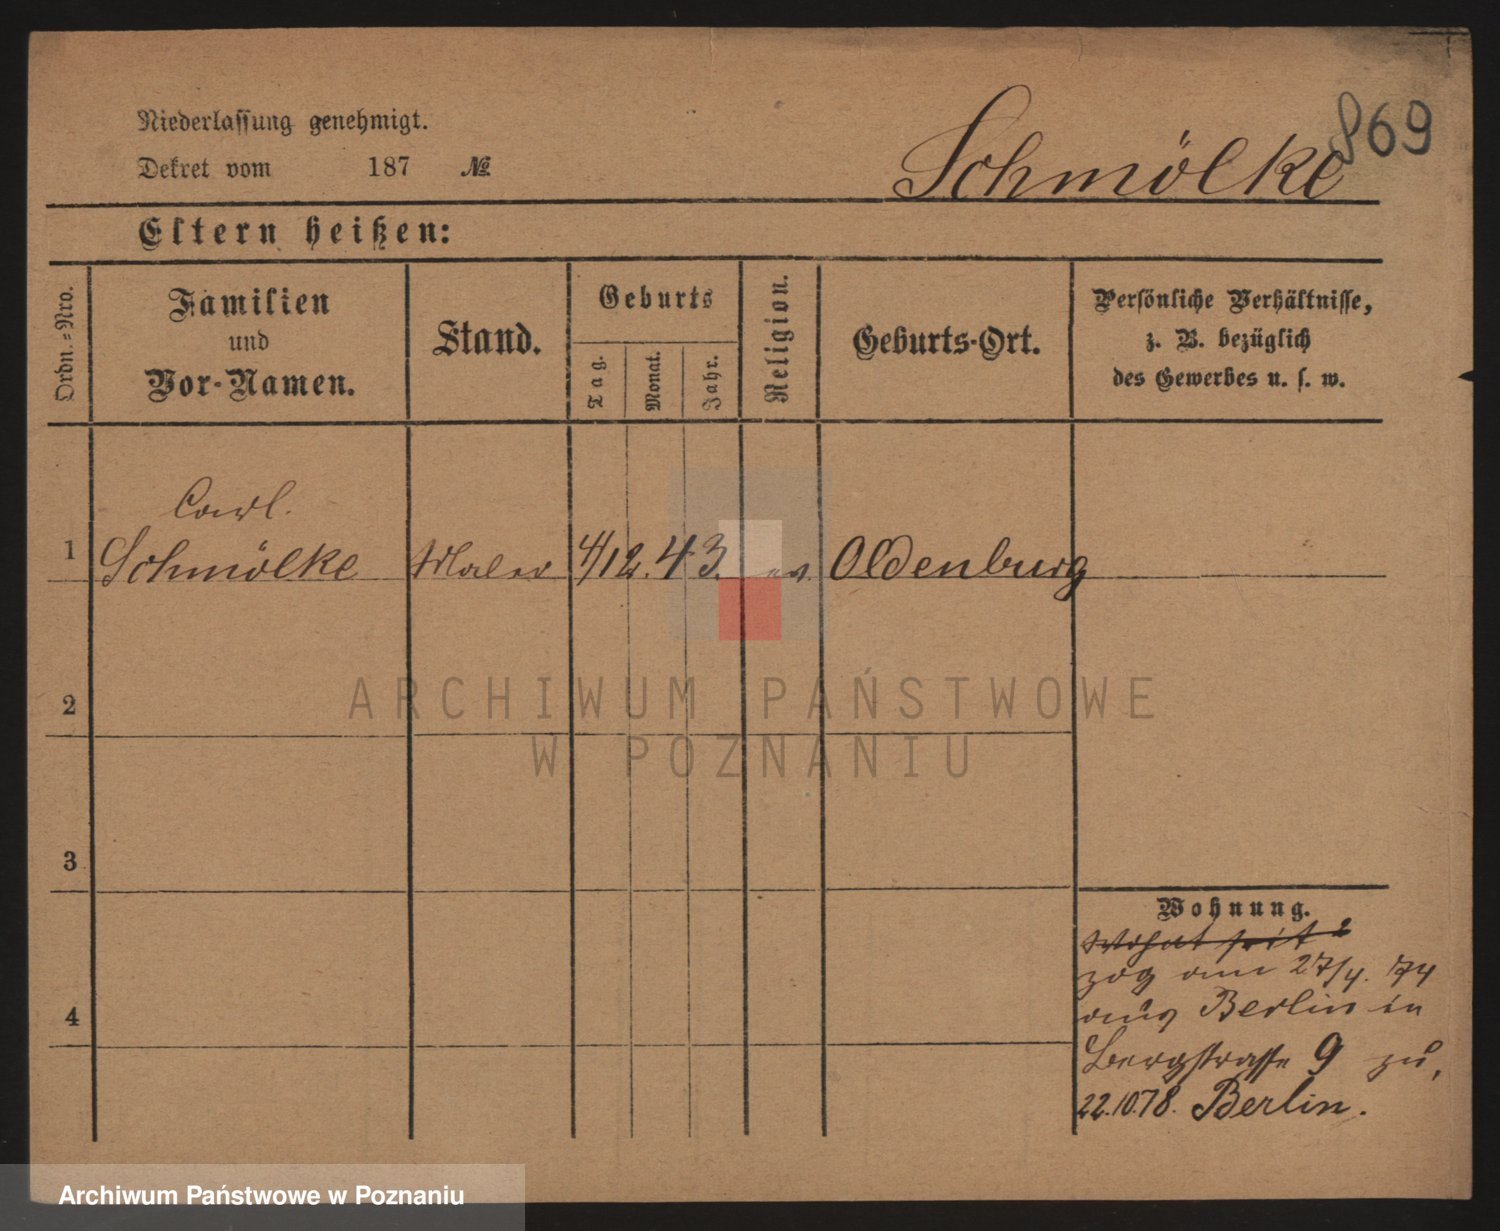 869
Niederlassung genehmigt.
Dekret vom 187 №
Schmölke
Eltern heißen:
Ordn.-Nro.
Familien
und
Vor-Namen.
Stand.
Geburts
Tag.
Monat.
Jahr.
Religion.
Geburts-Ort.
Persönliche Verhältnisse,
z. B. bezüglich
des Gewerbes u. s. w.
Carl.
1 Schmölke Maler 4/12. 43. ev. Oldenburg
2
3
4
Wohnung.
Wohnt seit
zog am 27/4. 74
aus Berlin in
Bergstrasse 9 zu,
22.10.78. Berlin.
ARCHIWUM PAŃSTWOWE
W POZNANIU
Archiwum Państwowe w Poznaniu